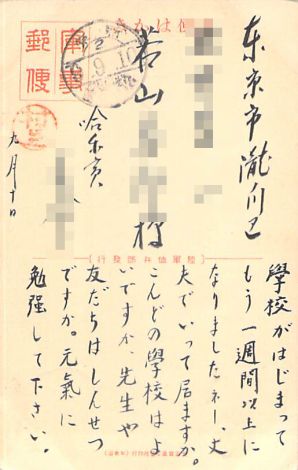 軍事
郵便
东京市瀧川区
若山
様
哈尓賓
九月十日
陸軍恤兵部發行
學校がはじまって
もう一週間以上に
なりましたネー、丈
夫でいって居ますか。
こんどの學校はよ
いですか、先生や
友だちはしんせつ
ですか。元氣に
勉強して下さい。